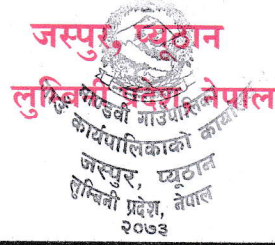 जस्पुर, प्यूठान
लुम्बिनी प्रदेश, नेपाल
माण्डवी गाउँपालिका
गाउँ कार्यपालिकाको कार्यालय
जस्पुर, प्यूठान
लुम्बिनी प्रदेश, नेपाल
२०७३